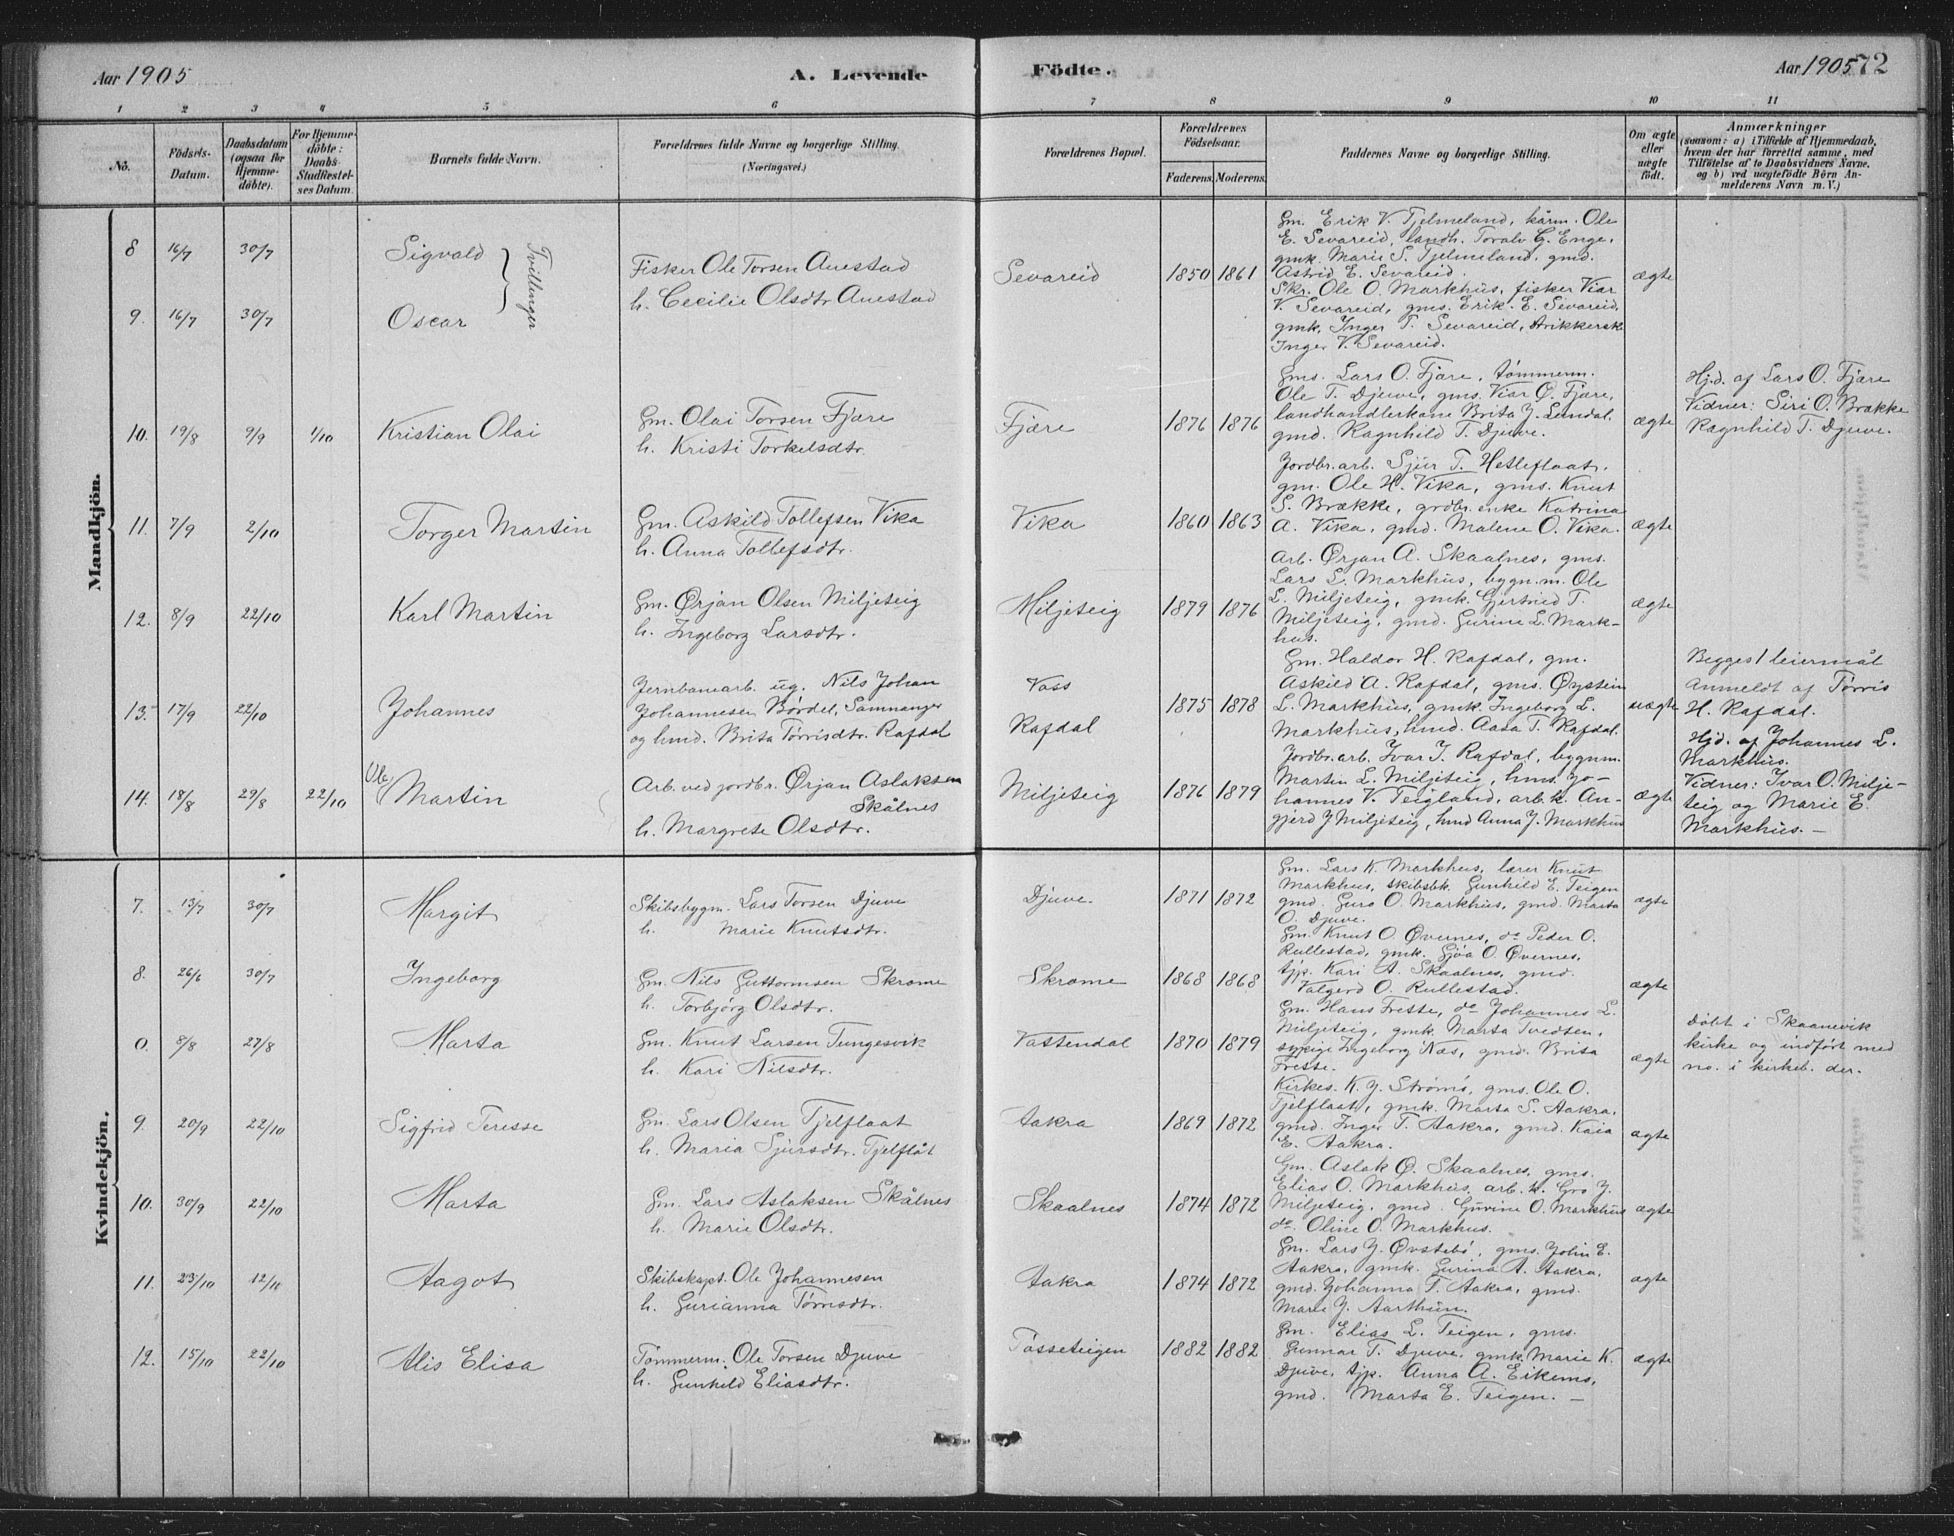 Aar 1905
A. Levende
Födte.
Aar 1905
72
1 2 3 4 5 6 7 8 9 10 11
No.
Födsels-
Datum.
Daabsdatum
(ogsaa for
Hjemme-
döbte).
For Hjemme-
döbte:
Daabs-
Stadfæstel-
ses Datum.
Barnets fulde Navn.
Forældrenes fulde Navne og borgerlige Stilling.
(Næringsvei.)
Forældrenes Bopæl.
Forældrenes
Födselsaar.
Faderens. Moderens.
Faddernes Navne og borgerlige Stilling.
Om ægte
eller
uægte
födt.
Anmærkninger
(saasom: a) i Tilfælde af Hjemmedaab,
hvem der har forrettet samme, med
Tilföielse af to Daabsvidners Navne,
og b) ved uægtefödte Börn An-
melderens Navn m. V.)
Mandkjön.
8 16/7 30/7 Sigvald
Tvillinger
9. 16/7 30/7 Oscar
Fisker Ole Torsen Auestad
h. Cecilie Olsdtr Auestad
Sevareid
1850 1861
Gm. Erik V. Tjelmeland, kårm. Ole
E. Sevareid, landh. Toralv G. Enge,
gmk. Marie S. Tjelmeland, gmd.
Astrid E. Sevareid.
Skr. Ole O. Markhus, fisker Viar
V. Sevareid, gms. Erik E. Sevareid,
gmk. Inger T. Sevareid, strikkersk
Inger V. Sevareid.
ægte
10. 19/8 9/9 1/10 Kristian Olai
Gm. Olai Torsen Fjære
h. Kristi Torkelsdtr.
Fjære
1876 1876
Gms. Lars O. Fjære, tömmerm.
Ole T. Djuve, gms. Viar Ø. Fjære,
landhandlerkone Brita J. Lundal.
gmd. Ragnhild T. Djuve.
ægte
Hjd. af Lars O. Fjære
Vidner: Siri O. Brække
Ragnhild T. Djuve.
11. 7/9 2/10 Torger Martin
Gm. Askild Tollefsen Vika
h. Anna Tollefsdtr.
Vika
1860 1863
Jordbr. arb. Sjur T. Hetleflaat,
gm. Ole H. Vika, gms. Knut
S. Brække, grdbr. enke Katrina
A. Vika, gmd. Malene O. Vika.
ægte
12. 8/9 22/10 Karl Martin
Gm. Ørjan Olsen Miljeteig
h. Ingeborg Larsdtr.
Miljeteig
1879 1876
Arb. Ørjan A. Skaalnes, gms.
Lars L. Markhus, bygn. m. Ole
L. Miljeteig, gmk. Gjertrud T.
Miljeteig, gmd. Gurine L. Mark-
hus.
ægte
13. 17/9 22/10 Johannes
Jernbanearb. ug. Nils Johan
Johannesen Børdal, Samnanger
og hmd. Brita Tørrisdtr. Rafdal
Voss
Rafdal
1875 1878
Gm. Haldor H. Rafdal, gm.
Askild A. Rafdal, gms. Øystein
L. Markhus, gmk. Ingeborg L.
Markhus, hmd. Aasa T. Rafdal.
uægte
Begges 1 leiermål
Anmeldt af Tørris
H. Rafdal.
14. 18/8 29/8 22/10 Ole
Martin
Arb. ved jordbr. Ørjan Aslaksen
Skålnes
h. Margrete Olsdtr.
Miljeteig
1876 1879
Jordbr. arb. Ivar I. Rafdal, bygnm.
Martin L. Miljeteig, hms. Jo-
hannes V. Teigland, arb. k. An-
gjerd J Miljeteig, hmd Anna J. Markhus
ægte
Hjd. af Johannes L.
Markhus.
Vidner: Ivar O. Milje-
teig og Marie E.
Markhus. –
Kvindekjön.
7. 13/7 30/7 Margit
Skibsbygm. Lars Torsen Djuve
h. Marie Knutsdtr.
Djuve.
1871 1872
Gm. Lars K. Markhus, lærer Knut
Markhus, skibsbk. Gunhild E. Teigen
gmd. Guro O. Markhus, gmd. Marta
O. Djuve.
ægte
8. 26/6 30/7 Ingeborg
Gm. Nils Guttormsen Skrome
h. Torbjörg Olsdtr.
Skrome
1868 1868
Gm. Knut O. Øvernes, do Peder O.
Rullestad, gmk. Gjøa O. Øvernes,
tjp. Kari A. Skaalnes, gmd.
Valgerd O. Rullestad.
ægte
0. 8/8 27/8 Marta
Gm. Knut Larsen Tungesvik
h. Kari Nilsdtr.
Vattendal
1870 1879
Gm. Hans Frette, do Johannes L.
Miljeteig, gmk. Marta Tvedten,
sypige Ingeborg Næs, gmd. Brita
Frette.
ægte
Döbt i Skaanevik
kirke og indført med
no. i kirkeb. der.
9. 20/9 22/10 Sigfrid Teresse
Gm. Lars Olsen Tjelflaat
h. Maria Sjursdtr. Tjelflåt
Aakra
1869 1872
Kirkes. K. J. Strømø, gms. Ole O.
Tjelflaat, gmk. Marta S. Aakra,
gmd. Inger T. Aakra, gmd. Kaia
E. Aakra.
ægte
10. 30/9 22/10 Marta
Gm. Lars Aslaksen Skålnes
h. Marie Olsdtr.
Skaalnes
1874 1872
Gm. Aslak Ø. Skaalnes, gms.
Elias O. Markhus, arb. k. Gro J.
Miljeteig, gmd. Gurine O. Markhus
do Oline O. Markhus.
ægte
11. 23/10 12/11 Aagot
Skibskapt. Ole Johannesen
h. Gurianna Tørrisdtr.
Aakra
1874 1872
Gm. Lars J. Øvstebö, gms. John E.
Aakra, gmk. Gurina A. Aakra,
gmd. Johanna T. Aakra, gmd.
Marie J. Aarthun.
ægte
12. 15/10 22/10 Alis Elisa
Tømmerm. Ole Torsen Djuve
h. Gunhild Eliasdtr.
Tøsseteigen
1882 1882
Gm. Elias L. Teigen, gms.
Gunnar T. Djuve, gmk. Marie K.
Djuve, tjp. Anna A. Eikemo,
gmd. Marta E. Teigen. –
ægte